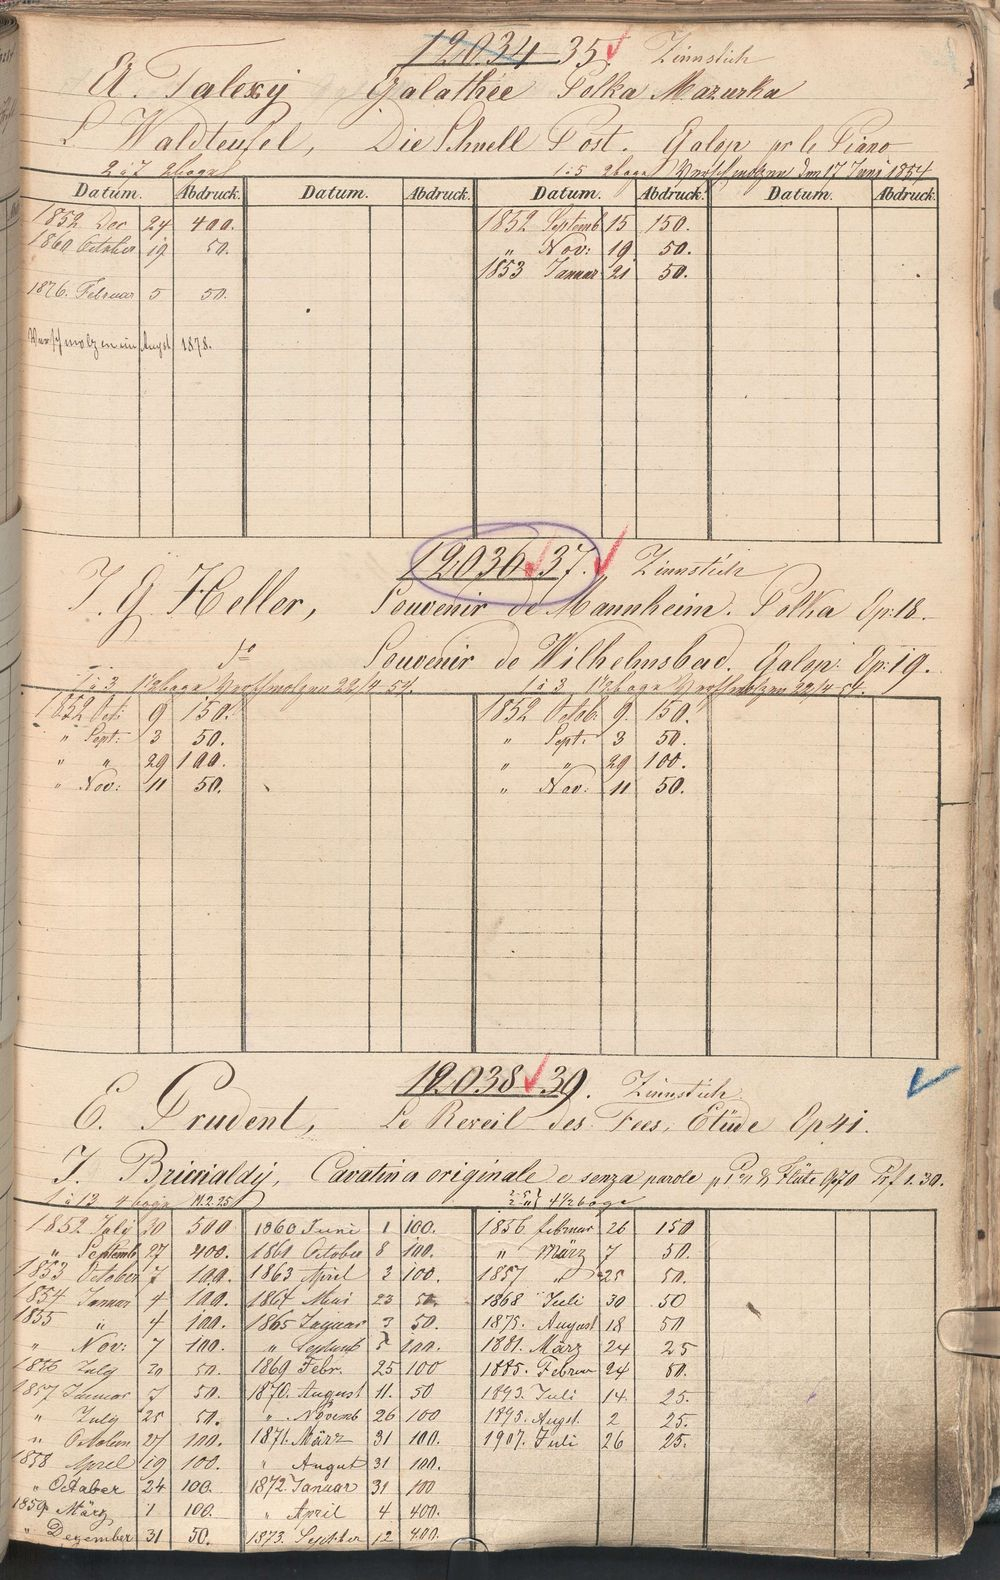 12034-35. Zinnstich
A. Talexy Galathée Polka Mazurka
L Waldteufel, Die Schnell Post. Galop pr le Piano
2 à 7 2 boge 1 à 5 2 boge Verschmolzen den 17 Juni 1854
Datum. Abdruck. Datum. Abdruck. Datum. Abdruck. Datum. Abdruck.
1852 Dec 24 400. 1852 Septemb 15 150.
1860 October 19 50. " Nov: 19 50.
1853 Januar 21 50.
1876. Februar 5 50.
Verschmolzen im Augst 1878.
12036-37. Zinnstich
J. G Heller, Souvenir de Mannheim. Polka Op: 18.
do Souvenir de Wilhelmsbad. Galop: Op: 19.
1 à 3 1 1/2 boge Verschmolzen 22/4 54. 1 à 3 1 1/2 boge Verschmolzen 22/4 54.
1852 Oct: 9 150. 1852 Octob. 9. 150.
" Sept: 3 50. " Sept: 3 50.
" " 29 100. " " 29 100.
" Nov: 11 50. " Nov: 11 50.
12038-39. Zinnstich
E. Prudent, Le Reveil des Fees, Etüde Op 41.
J. Briccialdy, Cavatina originale o senza parole p P. & Flüte Op 70 Pr f 1.30.
1 à 12 4 boge M. 2.25 4 1/2 boge
1852 July 30 500 1860 Juni 1 100. 1856 februar 26 150
" Septemb 27 200. 1861 October 8 100. " März 7 50.
1853 October 7 100. 1863 April 3 100. 1857 " 25 50.
1854 Januar 4 100. 1864 Mai 23 50. 1868 Juli 30 50
1855 " 4 100. 1865 Januar 3 50. 1875. August 18 50
" Nov: 7 100. " Septemb 5 100. 1881. März 24 25
1856 July 20 50. 1869 Febr. 25 100 1885. Februar 24 50.
1857 Januar 7 50. 1870. August 11. 50 1893. Juli 14. 25.
" July 25 50. " Novemb 26 100 1895. Augst. 2 25.
" October 27 100. 1871. März 31 100. 1907. Juli 26 25.
1858 April 19 100. " August 31 100.
" October 24 100. 1872 Januar 31 100
1859 März 1 100. " April 4 400.
" Dezember 31 50. 1873. Septber 12 400.